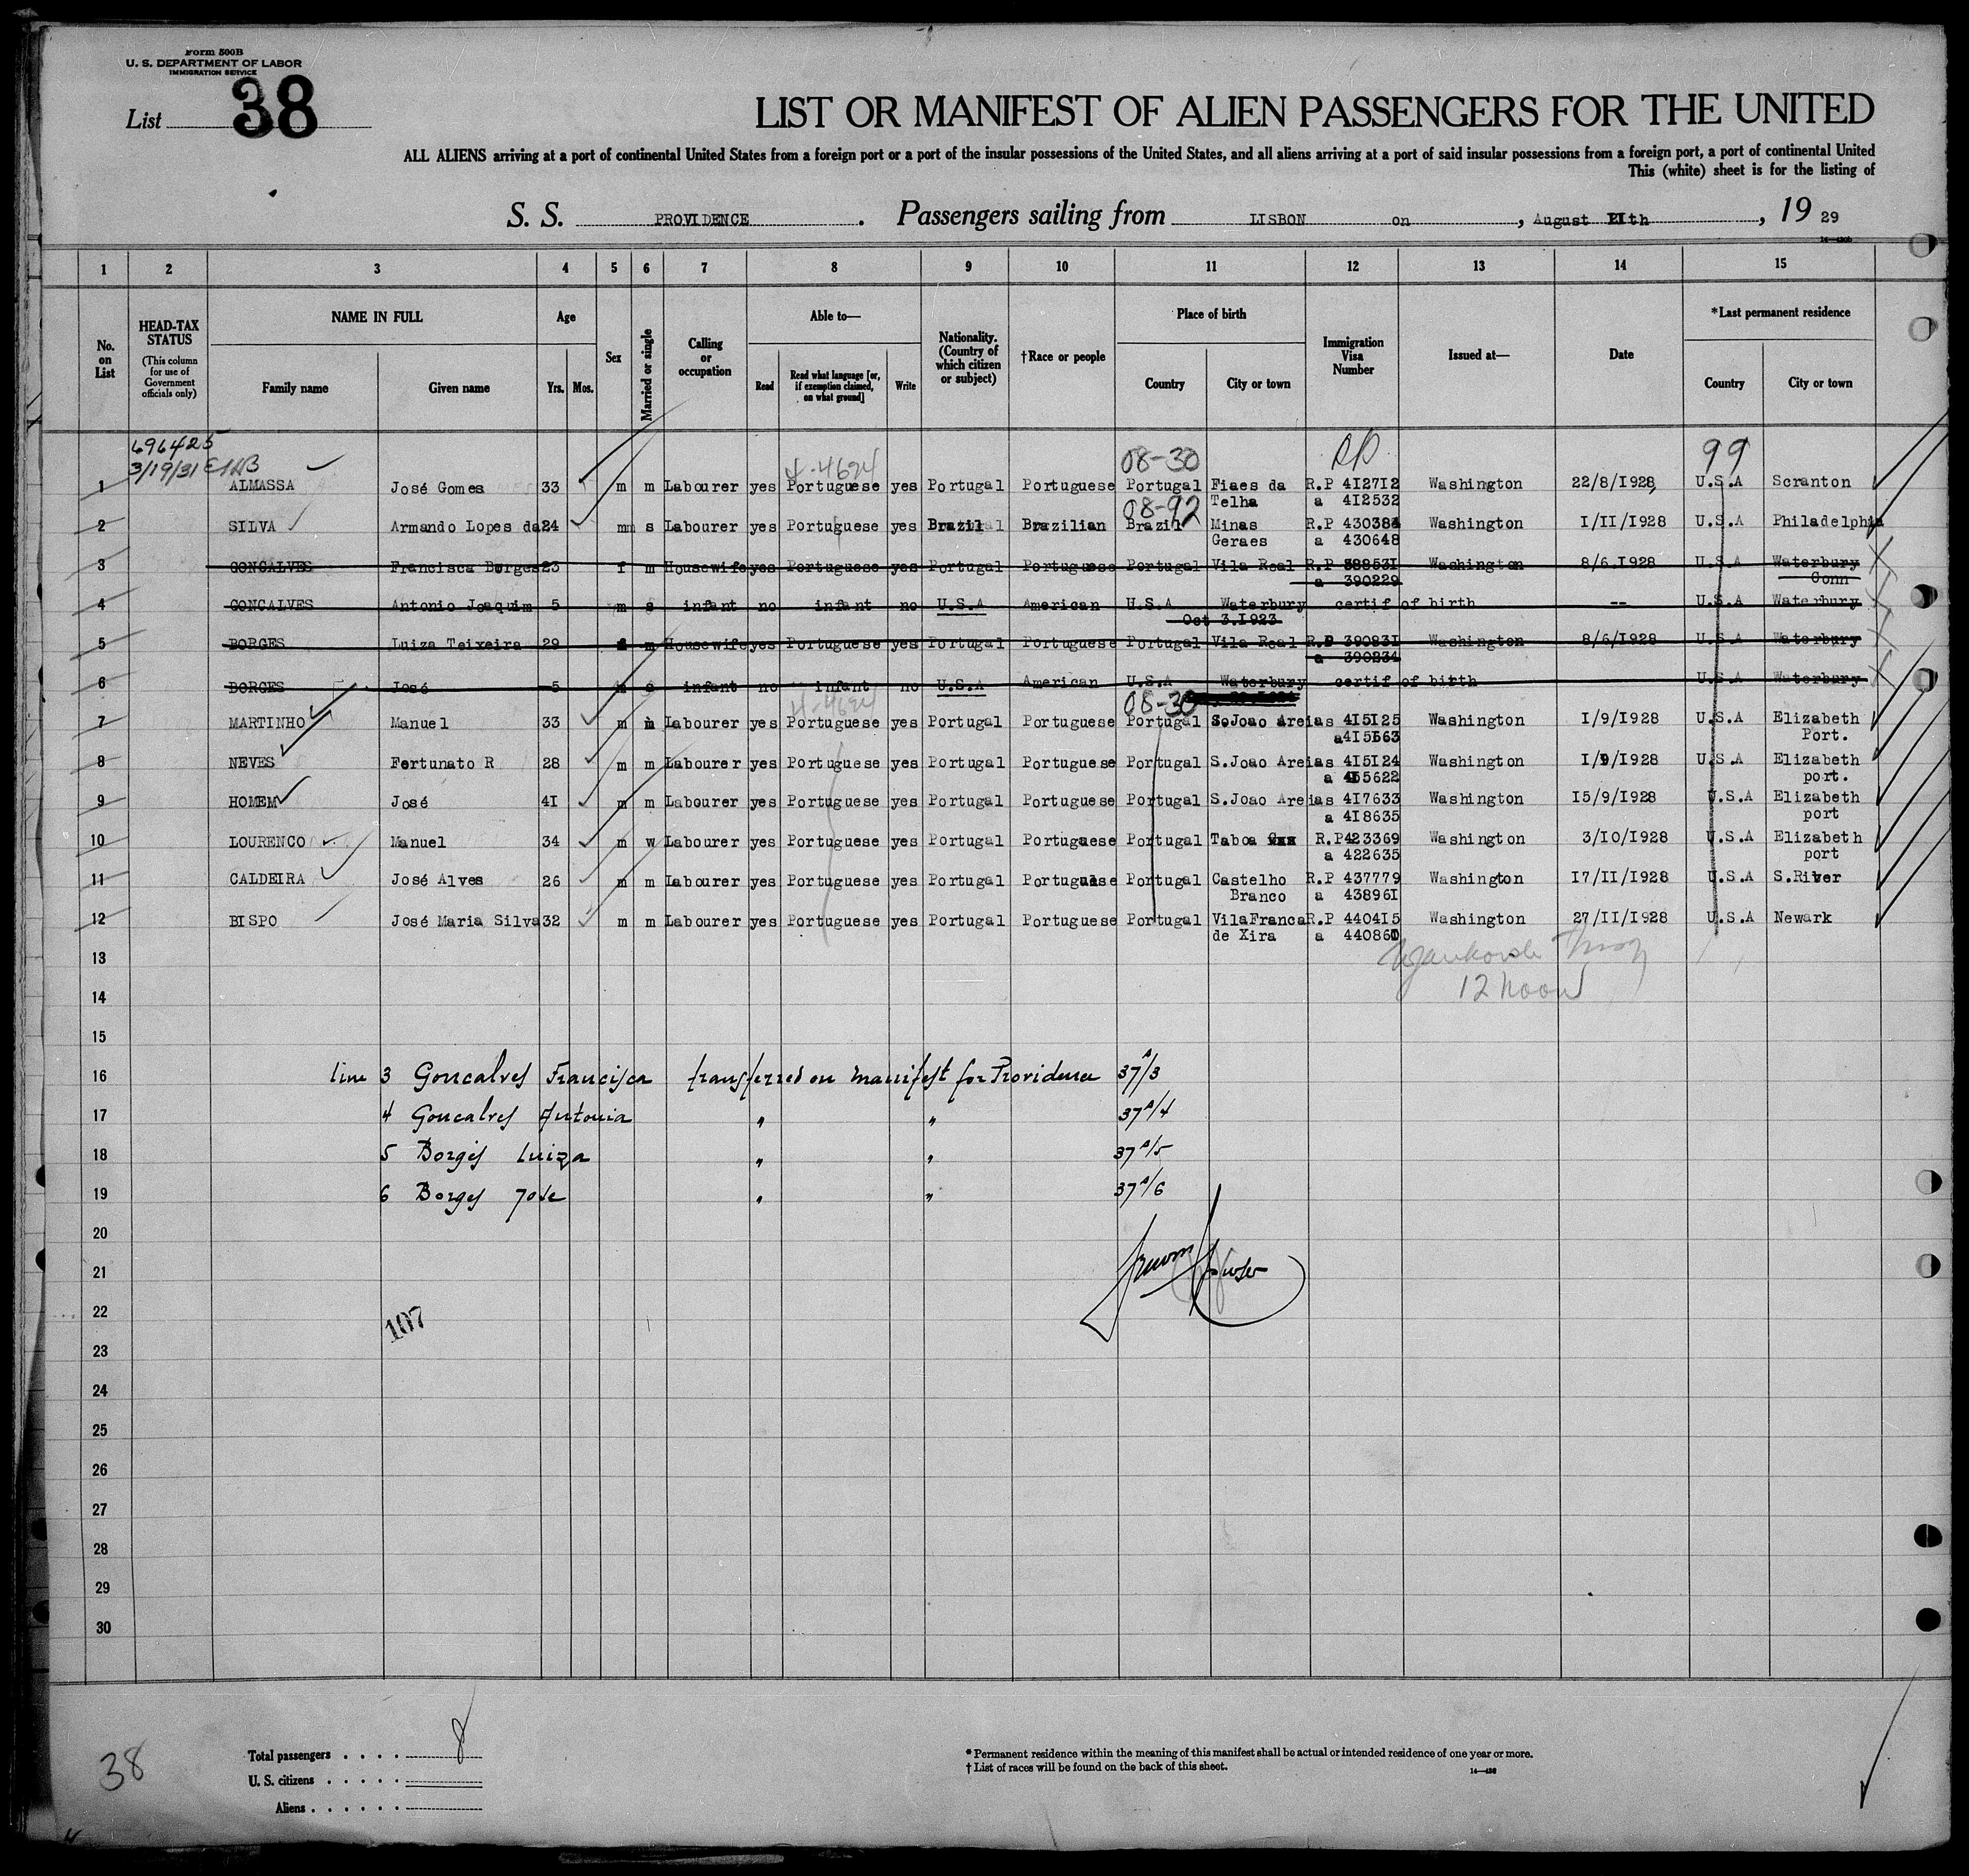 Form 500B
U. S. DEPARTMENT OF LABOR
IMMIGRATION SERVICE
List 38
LIST OR MANIFEST OF ALIEN PASSENGERS FOR THE UNITED
ALL ALIENS arriving at a port of continental United States from a foreign port or a port of the insular possessions of the United States, and all aliens arriving at a port of said insular possessions from a foreign port, a port of continental United
This (white) sheet is for the listing of
S. S. PROVIDENCE. Passengers sailing from LISBON on, August th, 19 29
1 2 3 4 5 6 7 8 9 10 11 12 13 14 15
No. on List
HEAD-TAX STATUS (This column for use of Government officials only)
NAME IN FULL Family name Given name
Age Yrs. Mos.
Sex
Married or single
Calling or occupation
Able to— Read Read what language [or, if exemption claimed, on what ground] Write
Nationality. (Country of which citizen or subject)
†Race or people
Place of birth Country City or town
Immigration Visa Number
Issued at—
Date
*Last permanent residence Country City or town
696425
3/19/31
4-4694 08-30 99
1 ALMASSA José Gomes 33 m m Labourer yes Portuguese yes Portugal Portuguese Portugal Fiaes da R.P 412712 Washington 22/8/1928 U.S.A Scranton
Telha a 412532
08-92
2 SILVA Armando Lopes da 24 m s Labourer yes Portuguese yes Brazil Brazilian Brazil Minas R.P 430384 Washington I/II/1928 U.S.A Philadelphia
Geraes a 430648
3 GONCALVES Francisca Borges 23 f m Housewife yes Portuguese yes Portugal Portuguese Portugal Vila Real R.P 388531 Washington 8/6.1928 U.S.A Waterbury
a 390229 Conn
4 GONCALVES Antonio Joaquim 5 m s infant no infant no U.S.A American U.S.A Waterbury certif of birth -- U.S.A Waterbury
Oct 3.1923
5 BORGES Luiza Teixeira 29 f m Housewife yes Portuguese yes Portugal Portuguese Portugal Vila Real R.P 390831 Washington 8/6/1928 U.S.A Waterbury
a 390234
6 BORGES José 5 m s infant no infant no U.S.A American U.S.A Waterbury certif of birth U.S.A Waterbury
4-4694 08-30
7 MARTINHO Manuel 33 m m Labourer yes Portuguese yes Portugal Portuguese Portugal S.Joao Areias 415125 Washington I/9/1928 U.S.A Elizabeth
a415663 Port.
8 NEVES Fortunato R 28 m m Labourer yes Portuguese yes Portugal Portuguese Portugal S.Joao Areias 415124 Washington I/9/1928 U.S.A Elizabeth
a 415622 port.
9 HOMEM José 41 m m Labourer yes Portuguese yes Portugal Portuguese Portugal S.Joao Areias 417633 Washington 15/9/1928 U.S.A Elizabeth
a 418635 port
10 LOURENCO Manuel 34 m w Labourer yes Portuguese yes Portugal Portuguese Portugal Taboa R.P423369 Washington 3/10/1928 U.S.A Elizabeth
a 422635 port
11 CALDEIRA José Alves 26 m m Labourer yes Portuguese yes Portugal Portuguese Portugal Castelho R.P 437779 Washington 17/II/1928 U.S.A S.River
Branco a 438961
12 BISPO José Maria Silva 32 m m Labourer yes Portuguese yes Portugal Portuguese Portugal VilaFranca R.P 440415 Washington 27/II/1928 U.S.A Newark
de Xira a 440860
13
14 12 noon
15
16 line 3 Goncalves Francisca transferred on manifest for Providence 37A/3
17 4 Goncalves Antonia " " 37A/4
18 5 Borges Luiza " " 37A/5
19 6 Borges Jose " " 37A/6
20
21
22 107
23
24
25
26
27
28
29
30
38
Total passengers . . . . 8
U. S. citizens . . . . .
Aliens . . . . . .
* Permanent residence within the meaning of this manifest shall be actual or intended residence of one year or more.
† List of races will be found on the back of this sheet.